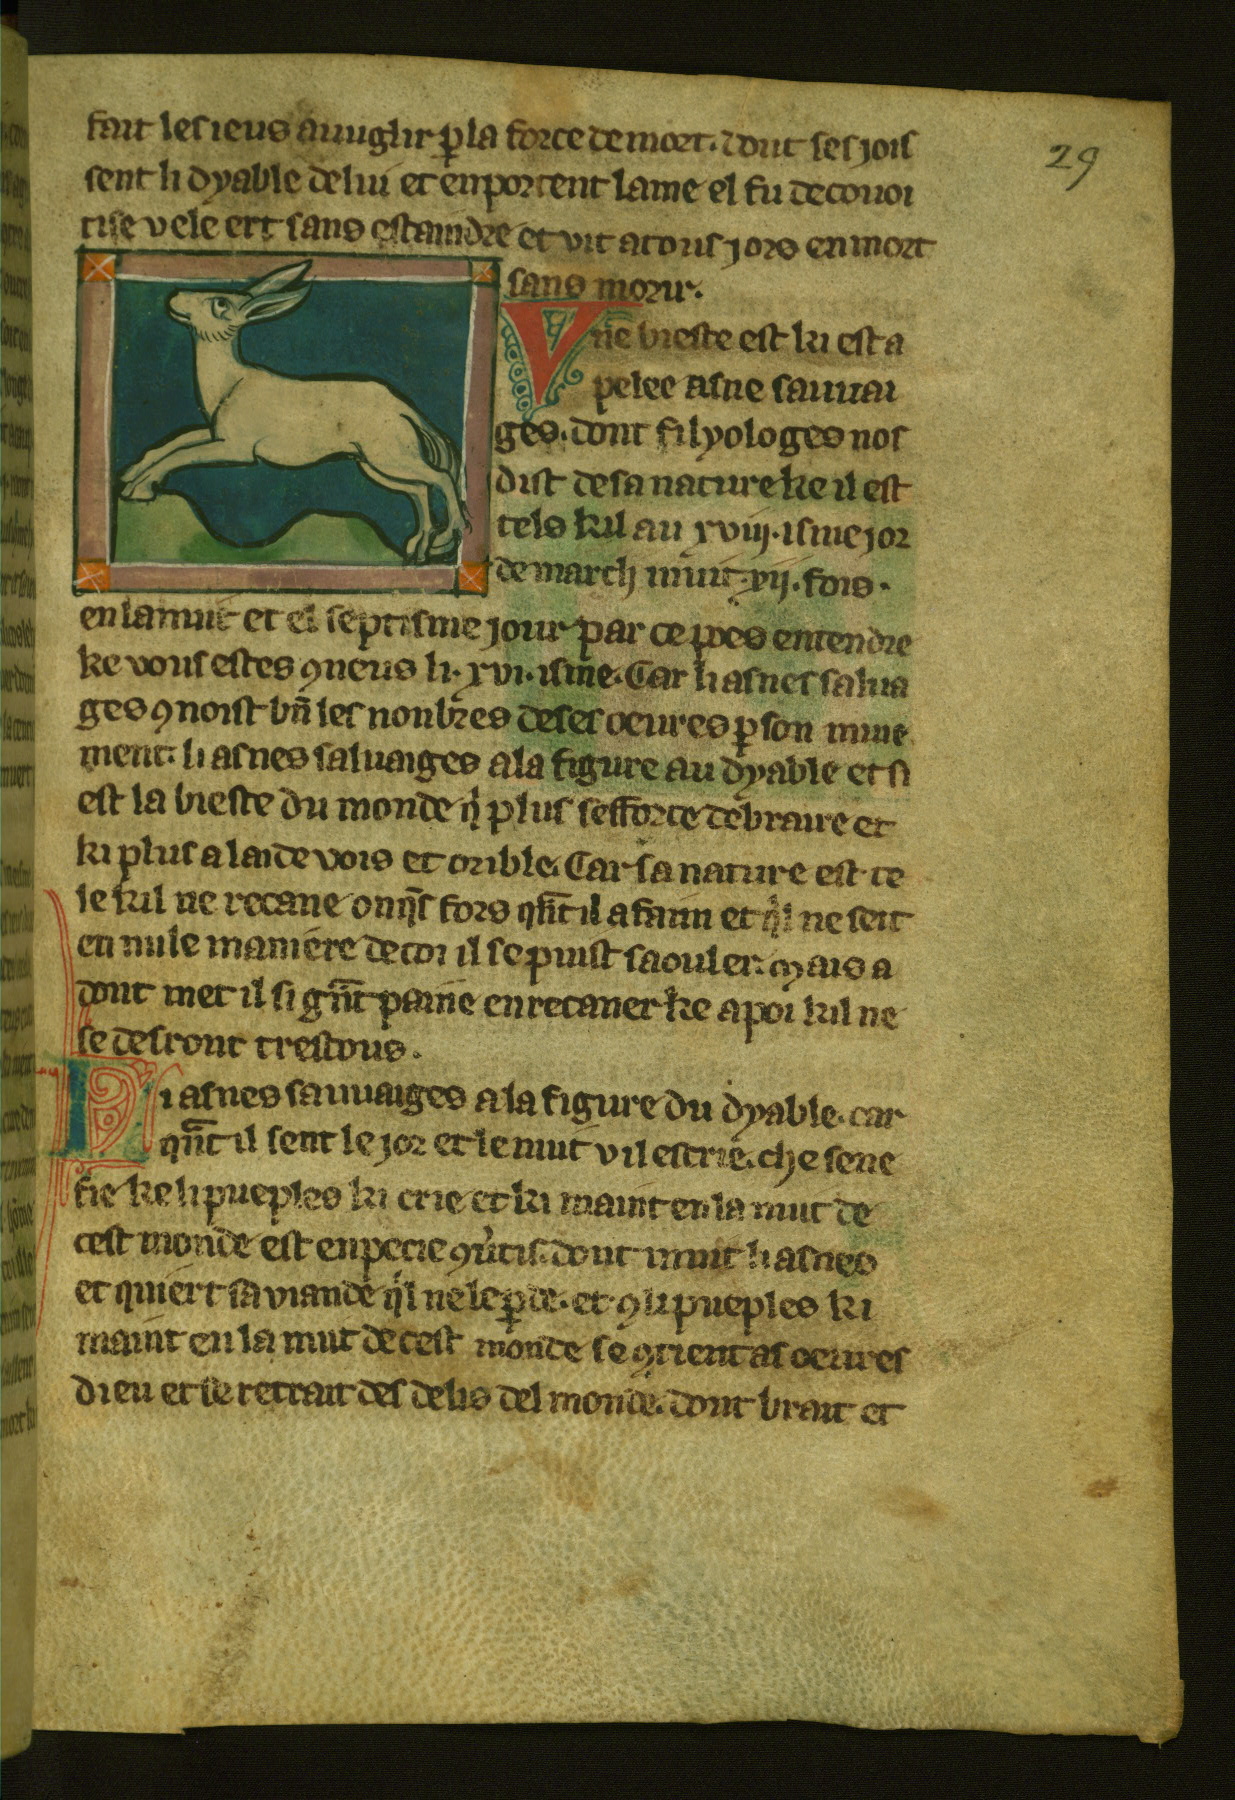 29
fait les ieus auuglir p̱ la force de mort. dont sesjois
sent li dyable de lui et enportent lame el fu de couoi
tise v ele ert sans estaindre et vit a tous jors en mort
sans morir.
Vne bieste est ki est a
pelee asne sauuai
ges. dont filyologes nos
dist de sa nature ke il est
tels kil au xviij. isme jor
de march muit. xij. fois.
en la nuit et el septisme jour par ce poes entendre
ke vous estes ꝯneus li. xvi. isme. Car li asnes salua
ges ꝯnoist bn̄ les nonbres de ses oeures ꝑ son muie
ment. li asnes saluaiges a la figure au dyable et si
est la bieste du monde qͥ plus sefforce de braire et
ki plus a laide vois et orible. Car sa nature est te
le kil ne recane onqs̄ fors qn̄t il a faim et qͥl ne seit
en nule maniere de coi il se puist saouler. mais a
dont met il si gn̄t paine en recaner ke a poi kil ne
se desront trestous.
Li asnes sauuaiges a la figure du dyable. car
qn̄t il sent le jor et le nuit v il estrie. che sene
fie ke li pueples ki crie et ki maint en la nuit de
cest monde est en pecie ꝯuͥtis. dont muit li asnes
et quiert sa viande qͥl ne le ꝑde. et ꝯ li pueples ki
maint en la nuit de cest monde se ꝯtient as oeures
dieu et se retrait des delis del monde. dont brait et